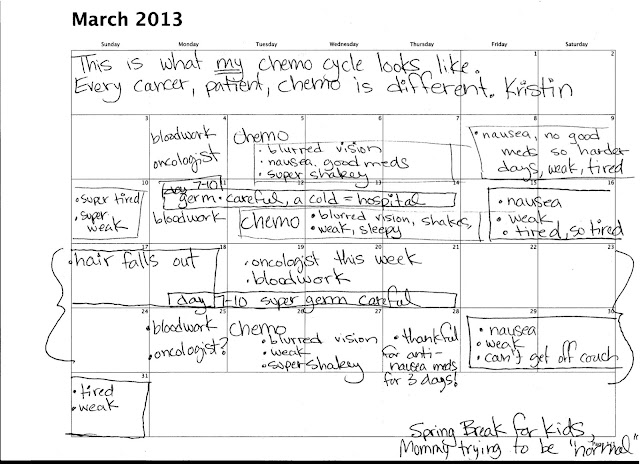 March 2013
Sunday Monday Tuesday Wednesday Thursday Friday Saturday
1 2
This is what my chemo cycle looks like.
Every cancer, patient, chemo is different. Kristin
3 4 5 6 7 8 9
bloodwork
oncologist
Chemo
• blurred vision
• nausea, good meds
• super shakey
• nausea, no good
meds so harder
days, weak, tired
10 11 12 13 14 15 16
• super tired
• super
weak
day 7-10
germ • careful, a cold = hospital
bloodwork
Chemo
• blurred vision, shakes,
• weak, sleepy
• nausea
• weak
• tired, so tired
17 18 19 20 21 22 23
• hair falls out
• oncologist this week
• bloodwork
day 7-10 super germ careful
24 25 26 27 28 29 30
• bloodwork
• oncologist?
Chemo
• blurred vision
• weak
• super shakey
• thankful
for anti-
nausea meds
for 3 days!
• nausea
• weak
• can't get off couch
31
• tired
• weak
Spring Break for kids,
Mommy trying to be "normal"